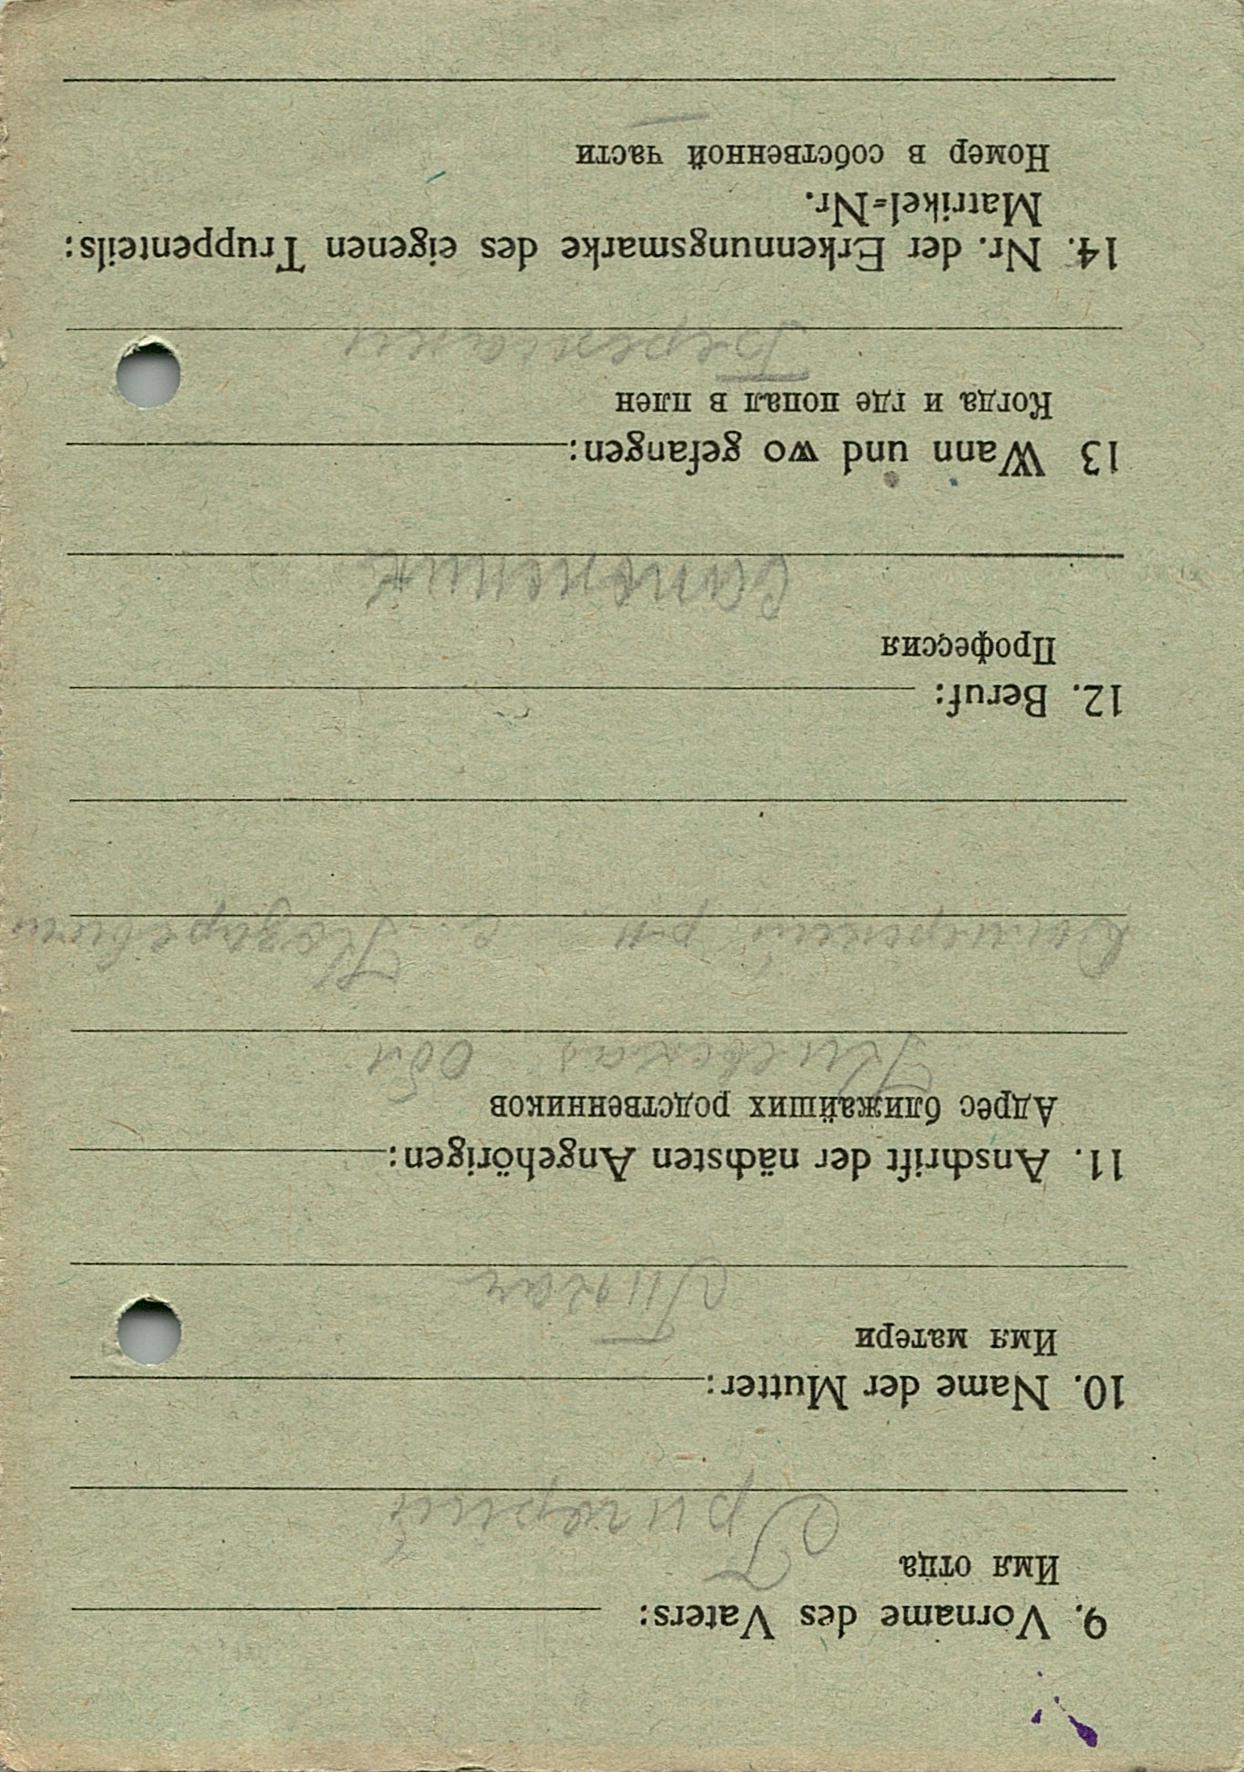 9. Vorname des Vaters:
Имя отца
Григорий
10. Name der Mutter:
Имя матери
11. Anschrift der nächsten Angehörigen:
Адрес ближайших родственников
Киевская обл
р-н с.
12. Beruf:
Профессия
13 Wann und wo gefangen:
Когда и где попал в плен
14. Nr. der Erkennungsmarke des eigenen Truppenteils:
Matrikel-Nr.
Номер в собственной части
—